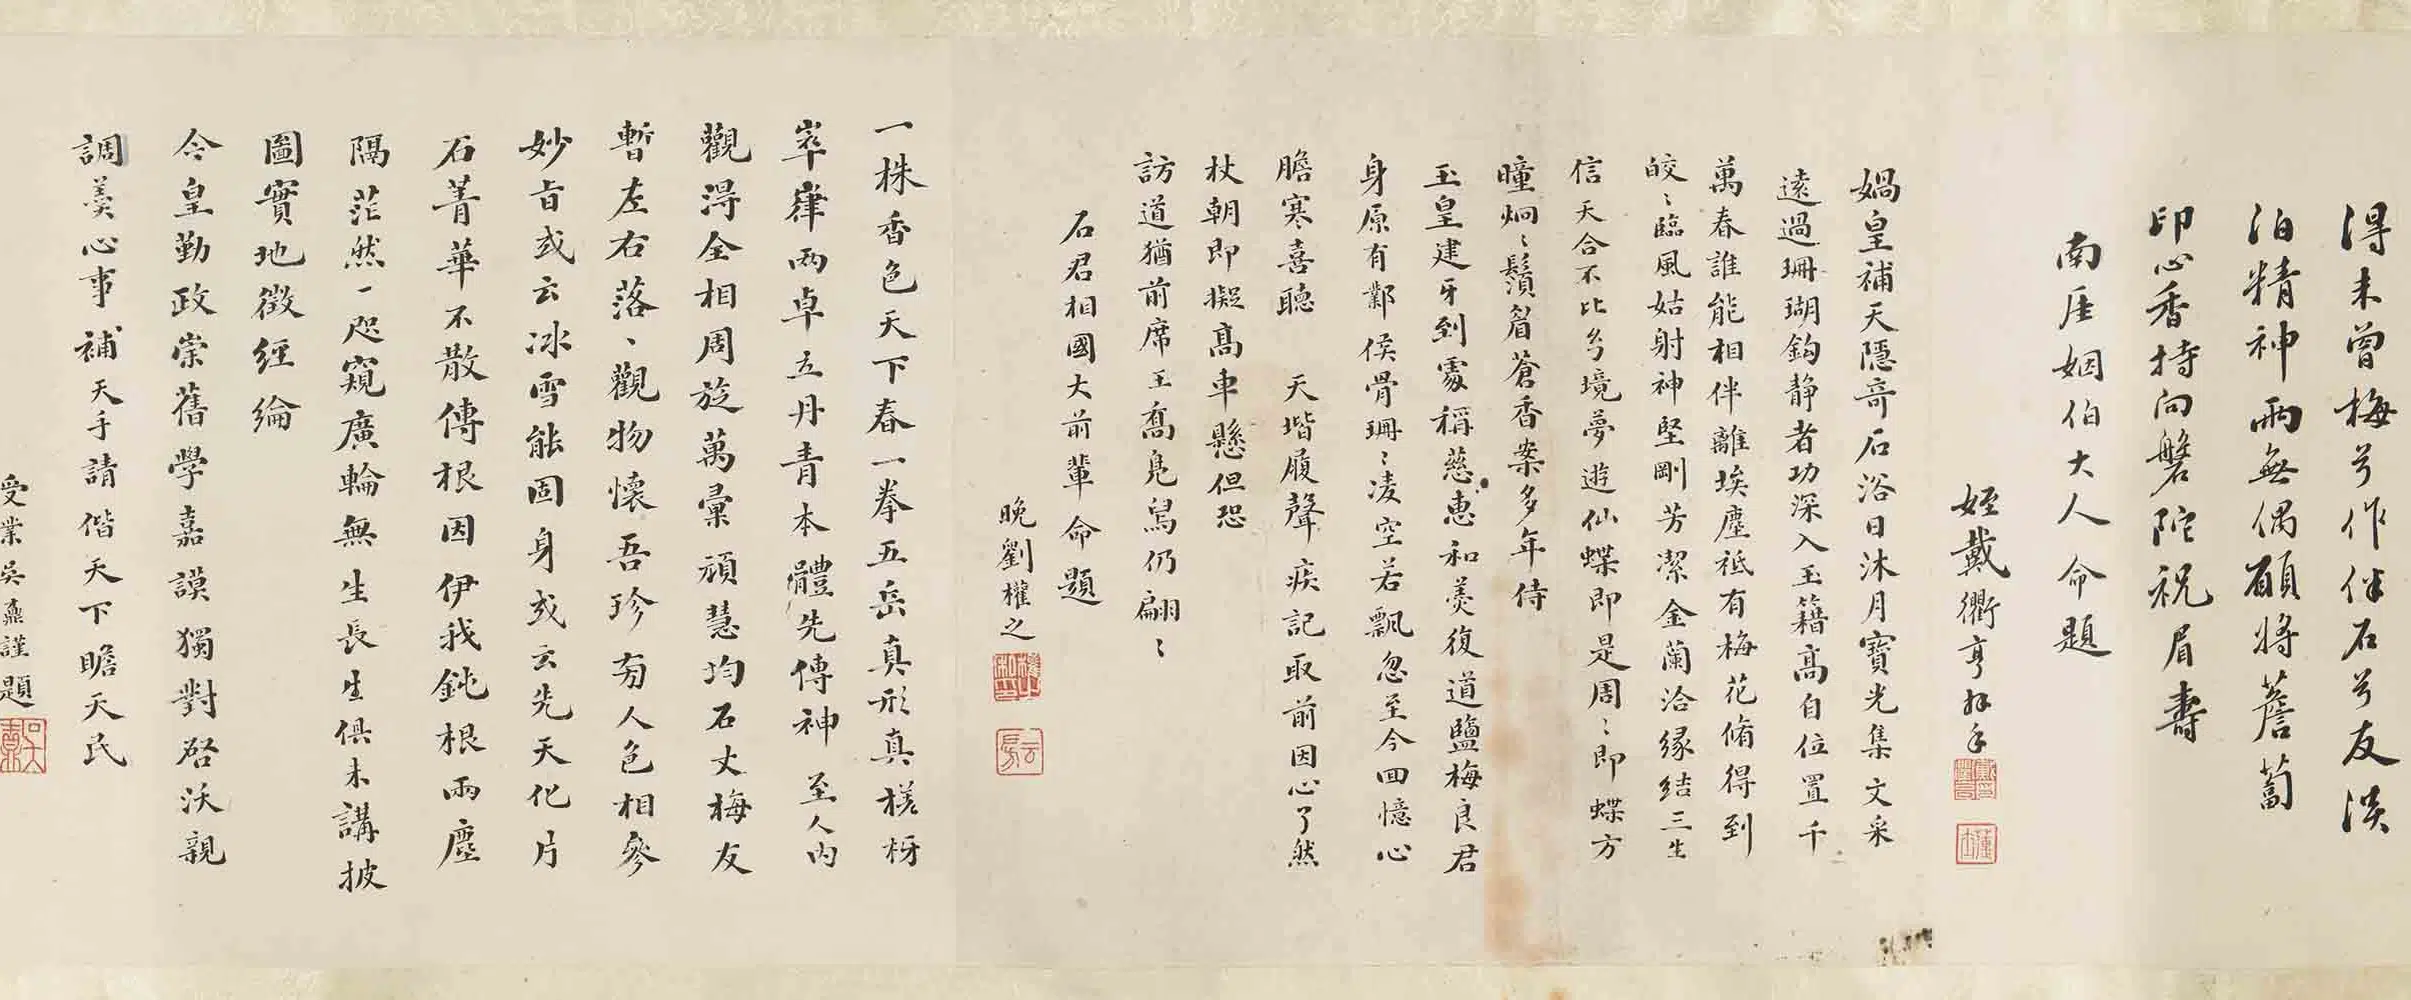 得未曾梅兮作伴石兮友淡
泊精神兩無偶願將薝蔔
印心香持向磐陀祝眉壽
南厓姻伯大人命題
姪戴衢亨拜手
媧皇補天隱奇石浴日沐月寶光集文采
遠過珊瑚鈎静者功深入玉籍高自位置千
萬春誰能相伴離埃塵祗有梅花脩得到
皎〻臨風姑射神堅剛芳潔金蘭洽緣結三生
信天合不比兮境夢遊仙蝶即是周〻即蝶方
瞳炯〻鬚眉蒼香案多年侍
玉皇建牙到處稱慈惠和羹復道鹽梅良君
身原有鄴侯骨珊〻凌空若飄忽至今回憶心
膽寒喜聽天堦履聲疾記取前因心了然
杖朝即擬高車懸但恐
訪道猶前席王喬鳧舄仍翩〻
石君相國大前輩命題
晚劉權之
一株香色天下春一拳五岳真形真槎枒
崒嵂兩卓立丹青本體先傳神至人内
觀得全相周旋萬彙頑慧均石丈梅友
暫左右落〻觀物懷吾珍有人色相參
妙旨或云冰雪能固身或云先天化片
石菁華不散傳根因伊我鈍根兩塵
隔茫然一咫窺廣輪無生長生俱未講披
圖實地徵經綸
今皇勤政崇舊學嘉謨獨對啓沃親
調羹心事補天手請偕天下瞻天民
受業吳鼒謹題